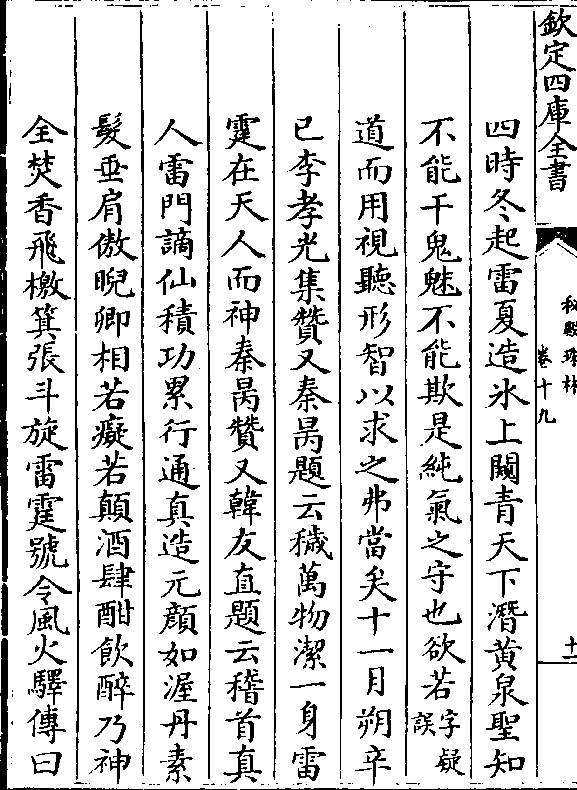 欽定四庫全書
秘殿珠林
卷十九
十二
四時冬起雷夏造氷上闚青天下潛黃泉聖知
不能干鬼魅不能欺是純氣之守也欲若字疑誤
道而用視聽形智以求之弗當矣十一月朔辛
已李孝光集贊又秦昺題云穢萬物潔一身雷
霆在天人而神秦昺贊又韓友直題云稽首真
人雷門謫仙積功累行通真造元顔如渥丹素
髮垂肩傲睨卿相若癡若顛酒肆酣飲醉乃神
全焚香飛檄箕張斗旋雷霆號令風火驛傳曰